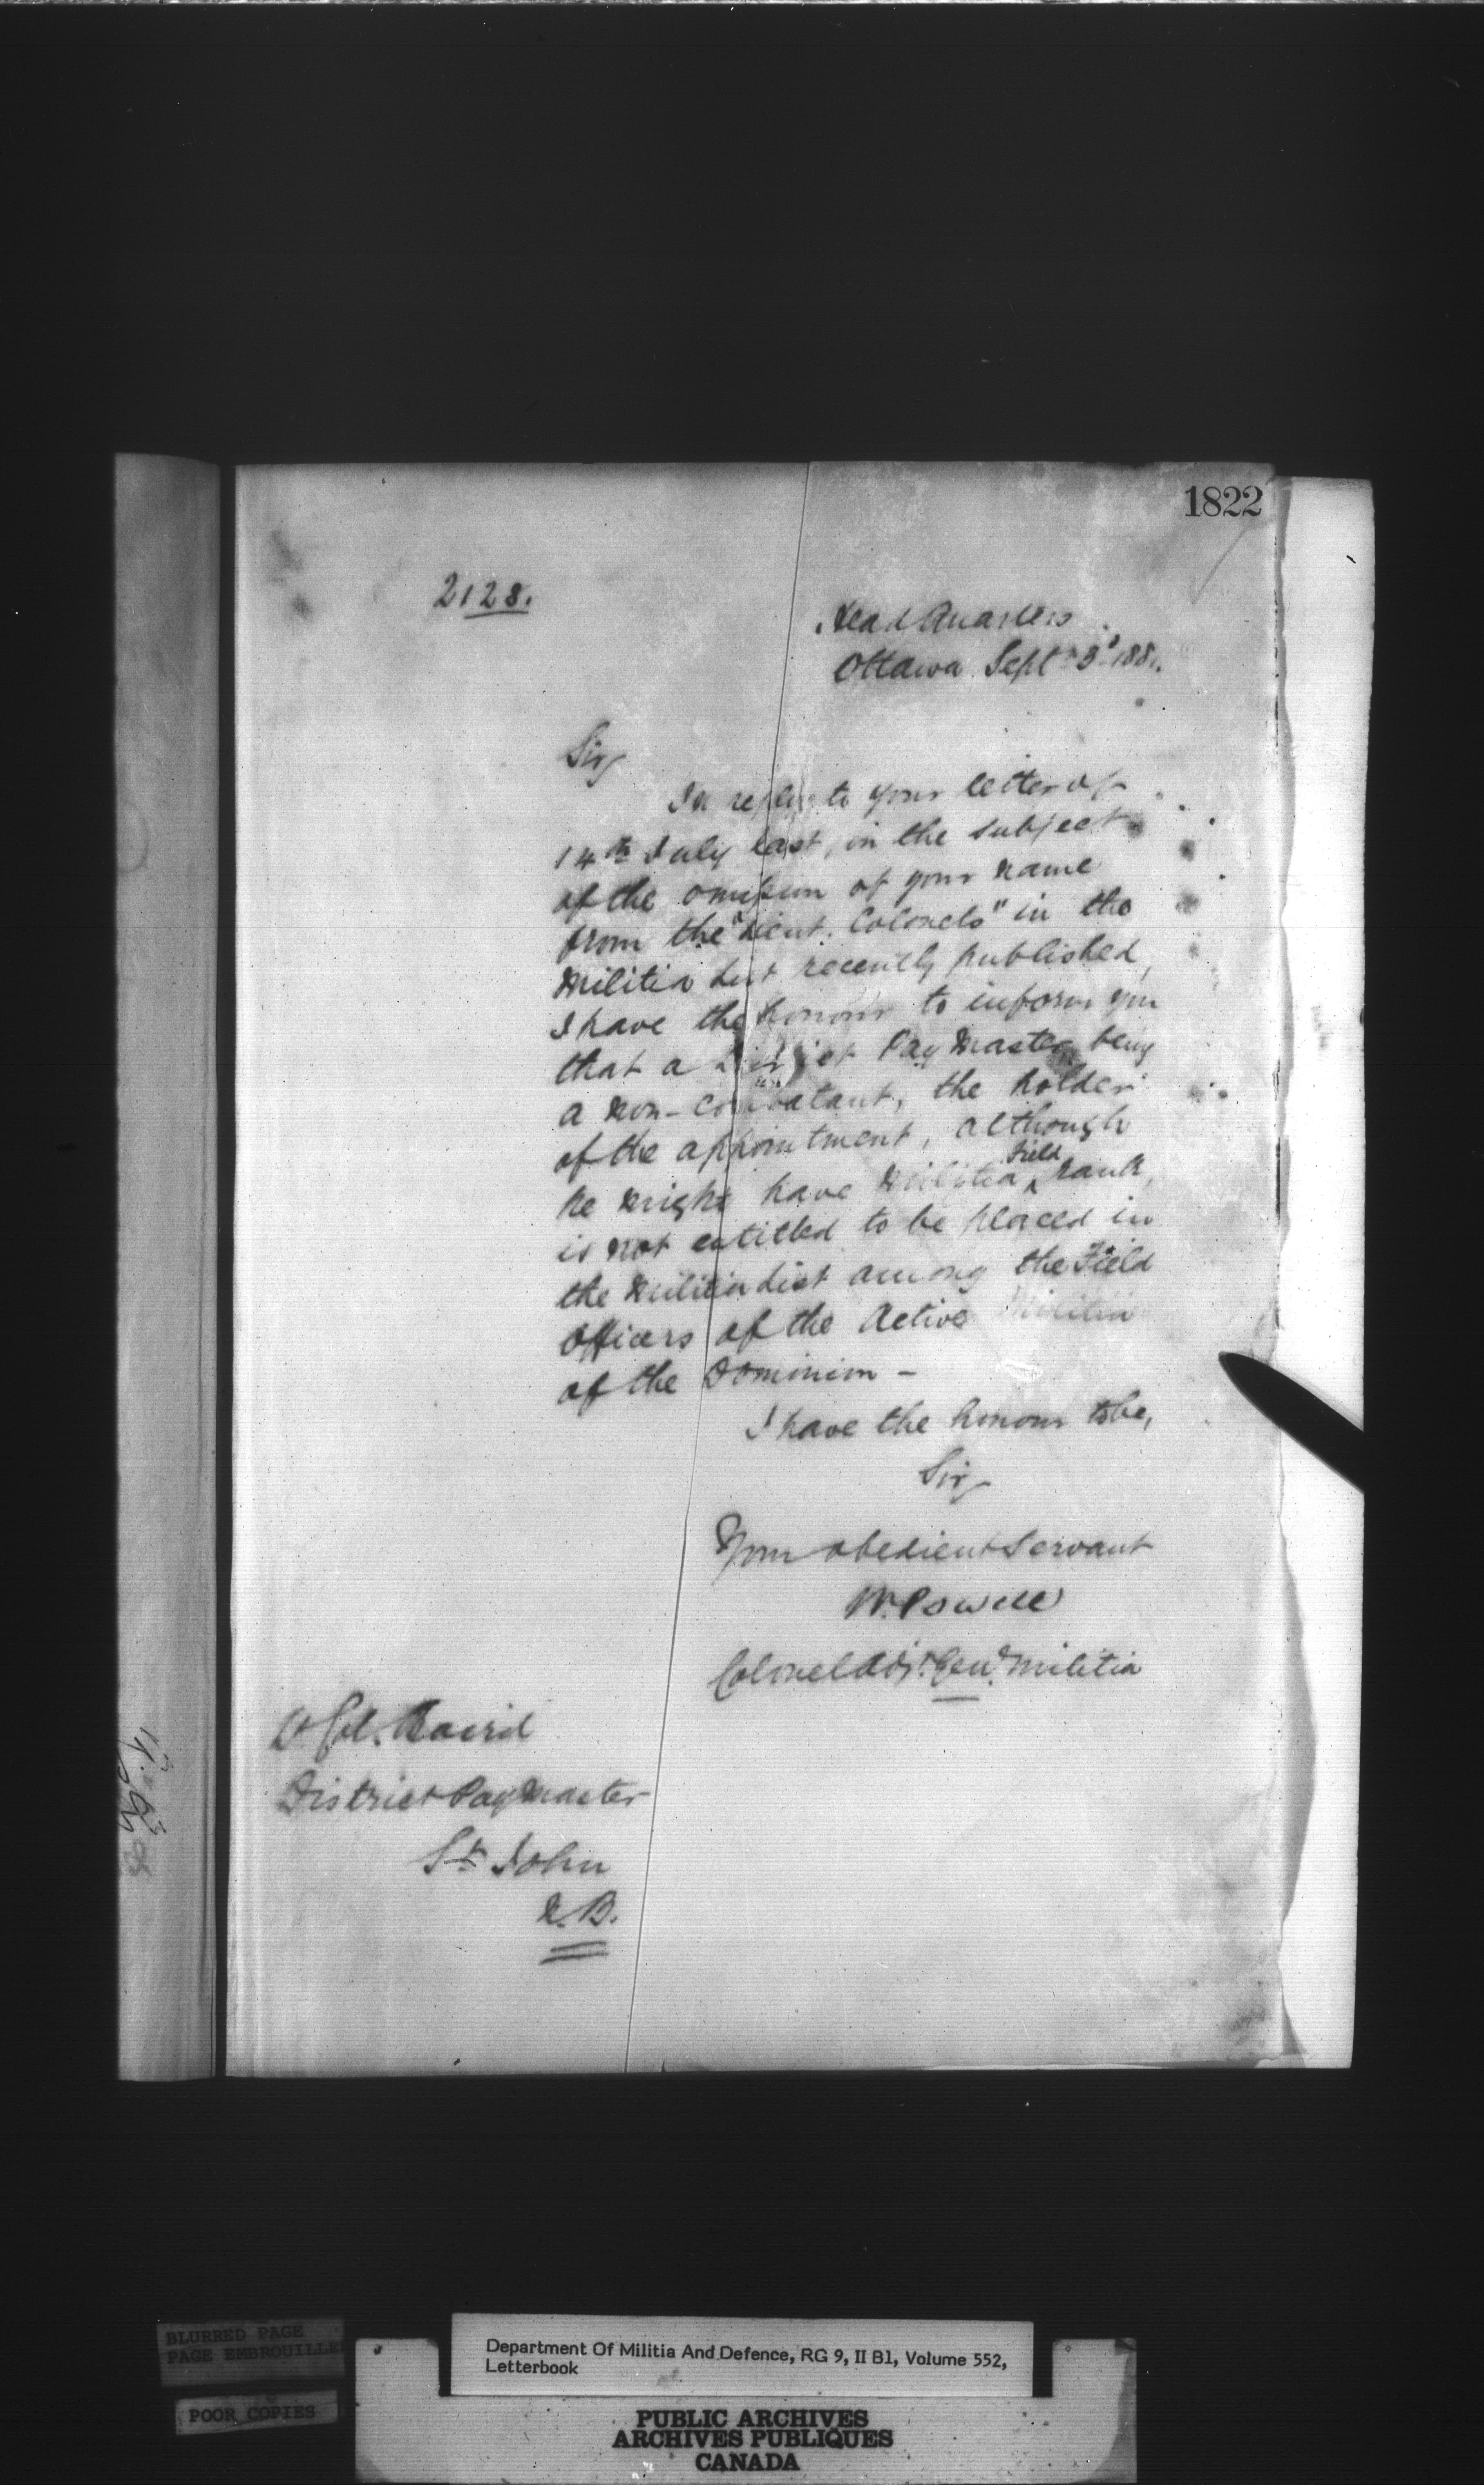 1822
2128.
Head Quarters
Ottawa Septr 3d 1881.
Sir,
In reply to your letter of
14th July last, in the subject
of the omission of your name
from the "Lieut. Colonels" in the
Militia List recently published,
I have the honour to inform you
that a District Pay Master being
a non-combatant, the holder
of the appointment, although
he might have Militia Field rank,
is not entitled to be placed in
the Militia List among the Field
Officers of the Active Militia
of the Dominion -
I have the honour to be,
Sir,
Your obedient Servant
W. Powell
Colonel Adjt. Genl. Militia
Lt Col. Baird
District Pay Master
St John
N.B.
BLURRED PAGE
PAGE EMBROUILLEE
POOR COPIES
Department Of Militia And Defence, RG 9, II B1, Volume 552,
Letterbook
PUBLIC ARCHIVES
ARCHIVES PUBLIQUES
CANADA